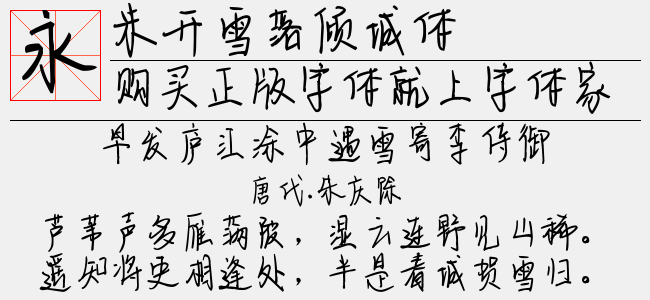 永
朱开雪落倾城体
购买正版字体就上字体家
早发庐江涂中遇雪寄李侍御
唐代.朱庆馀
芦苇声多雁满陂，湿云连野见山稀。
遥知将吏相逢处，半是看城损雪归。